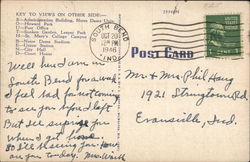 KEY TO VIEWS ON OTHER SIDE:—
A—Administration Building, Notre Dame Univ.
B—Howard Park
C—Post Office
D—Sunken Garden, Leeper Park
E—St. Mary's College Campus
F—Notre Dame Stadium
G—Union Station
H—City Hall
I—Court House
SOUTH BEND
OCT 20
12 PM
1946
IND.
POST CARD
Well here I am in
South Bend for awhile
I feel bad for not coming
to see you before I left
But be surprise you
when I get home
So I'll be seeing you. How
are you today. Mrs.
Mr & Mrs Phil Haug
1921 Stringtown Rd
Evansville, Ind.